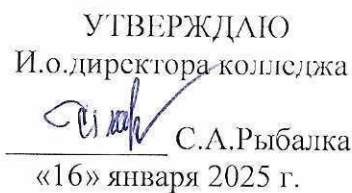 УТВЕРЖДАЮ
И.о.директора колледжа
С.А.Рыбалка
«16» января 2025 г.